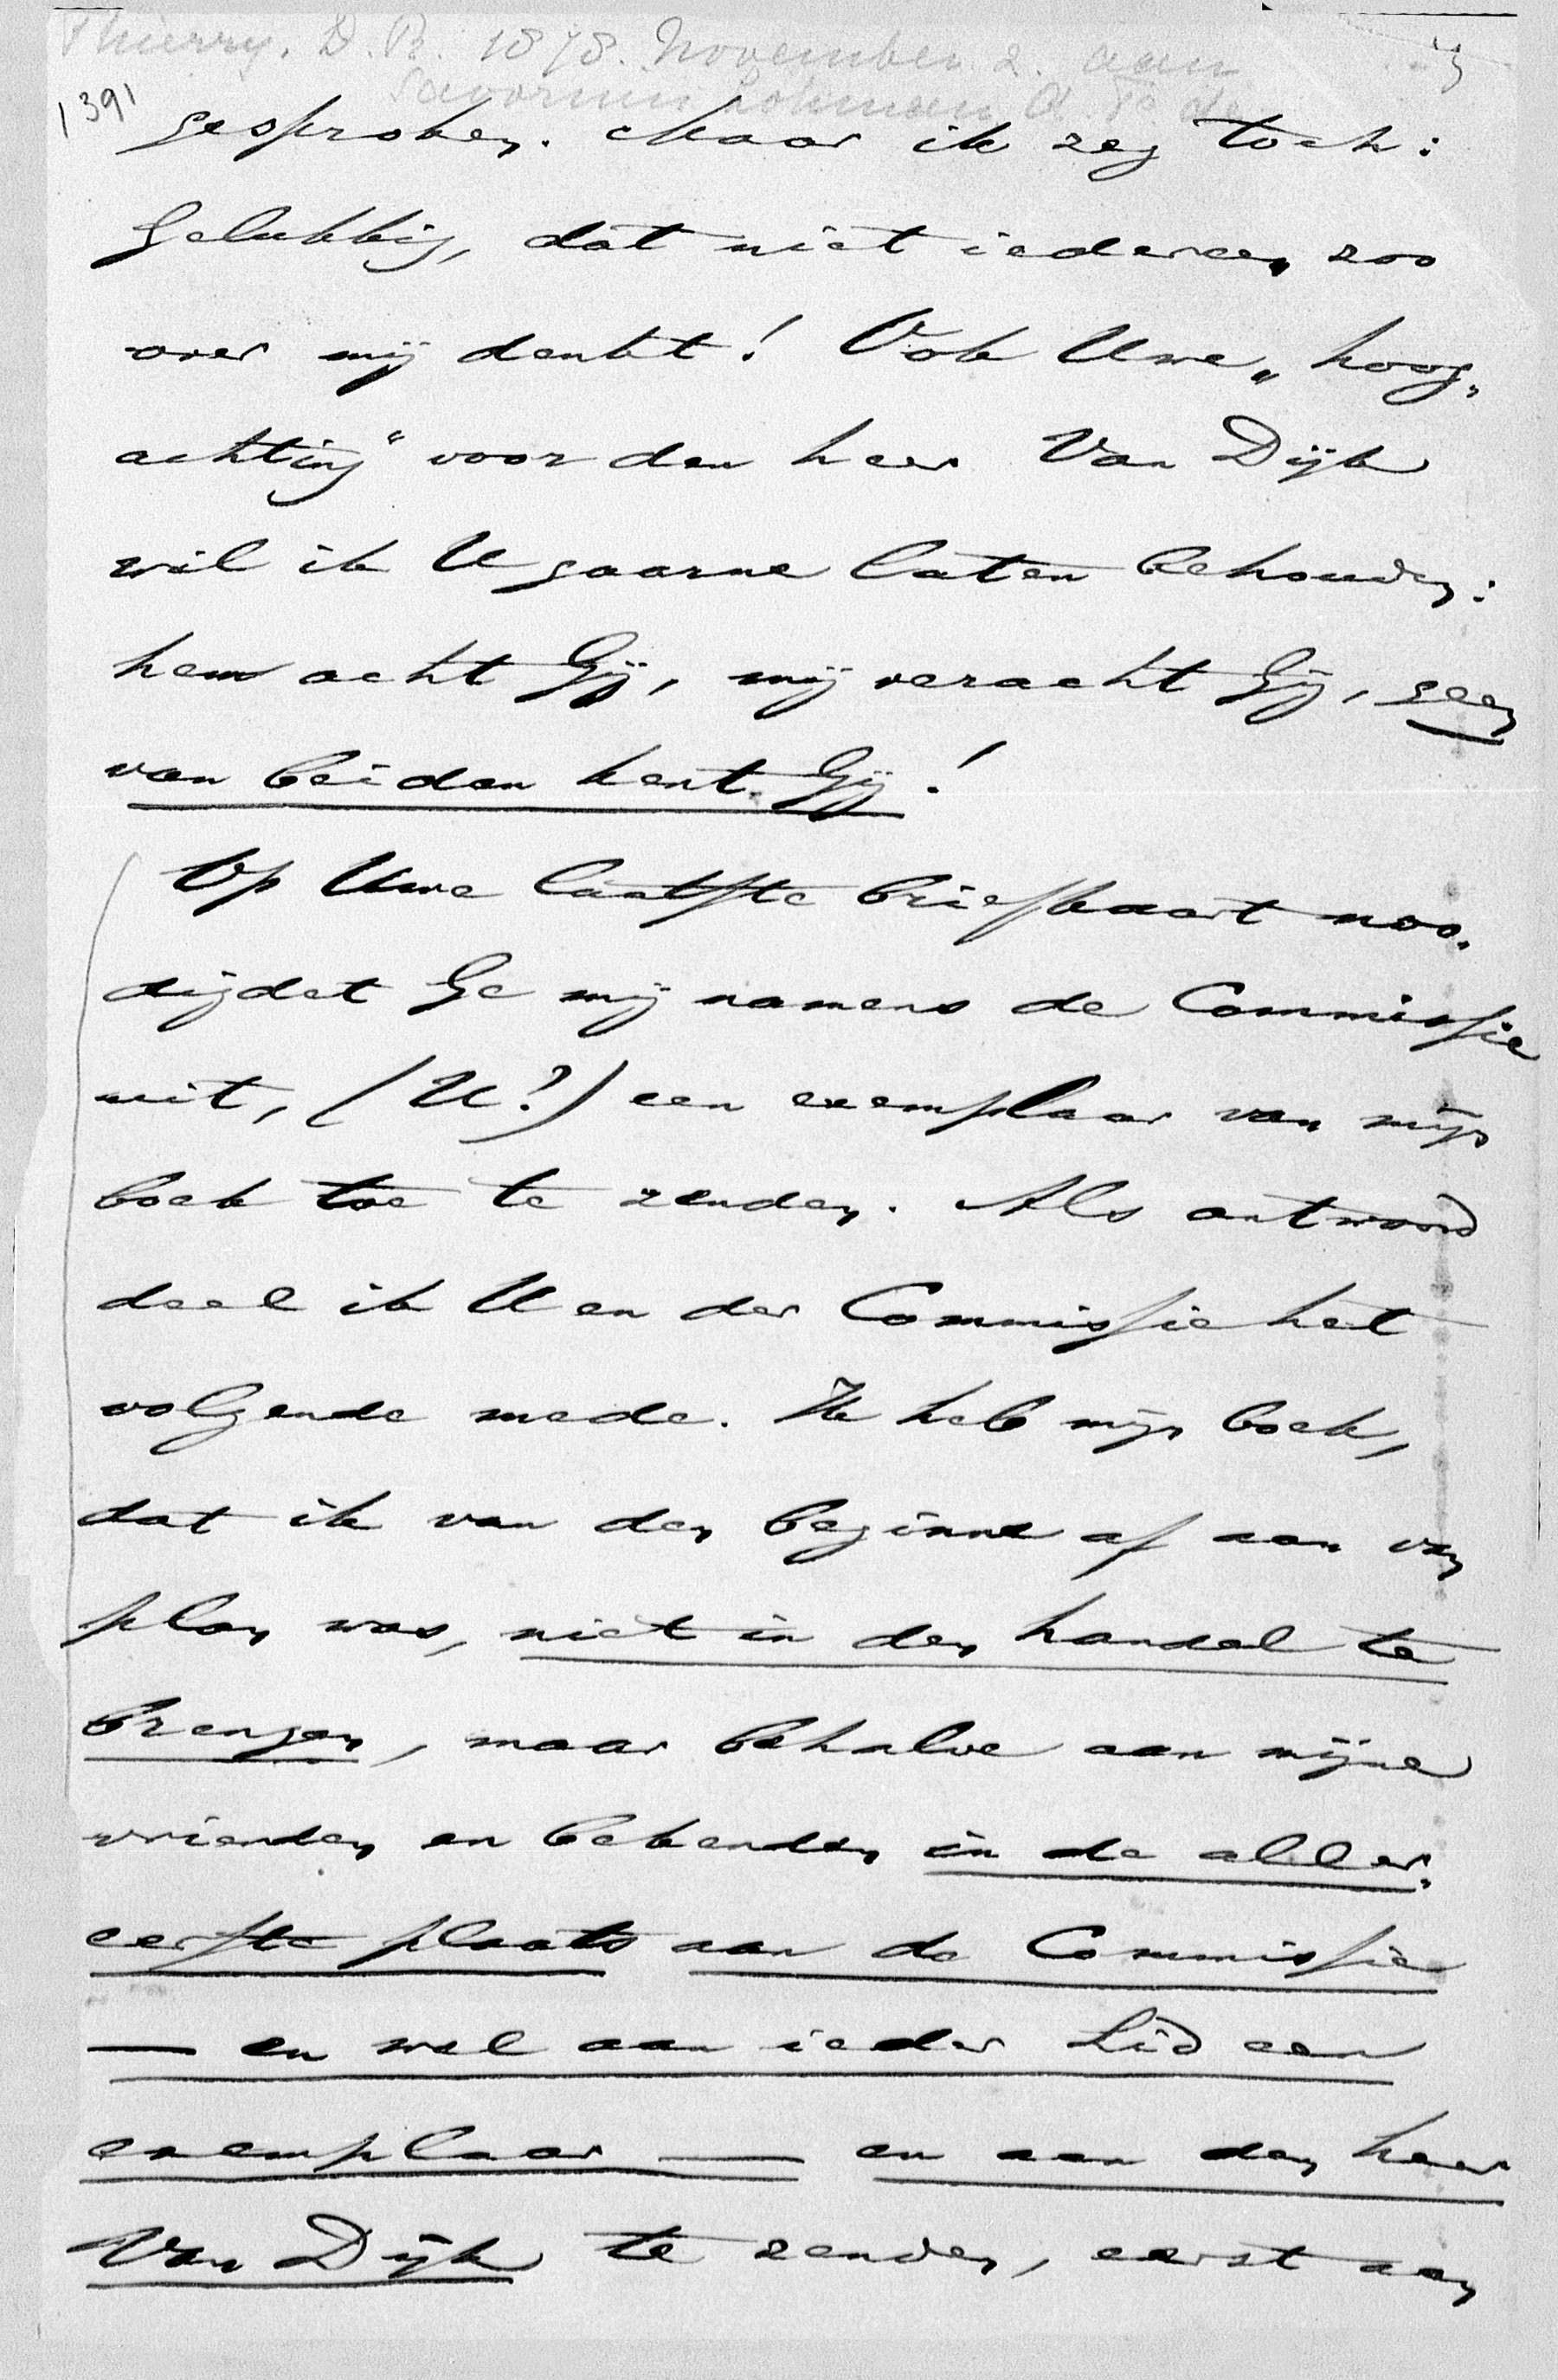 Thierry. D. B. 1878. November 2. aan
Savornin Lohman A. F. de
1391
gesproken. Maar ik zeg toch:
Gelukkig, dat niet iedereen zoo
over mij denkt! Ook Uwe „hoog„
achting“ voor den heer Van Dijk
wil ik U gaarne laten behouden:
hem acht Gij, mij veracht Gij, geen
van beiden kent Gij!
Op Uwe laatste briefkaart noo„
digdet Ge mij namens de Commissie
uit, (U?) een exemplaar van mijn
boek toe te zenden. Als antwoord
deel ik U en der Commissie het
volgende mede. Ik heb mijn boek,
dat ik van den beginne af aan van
plan was, niet in den handel te
brengen, maar behalve aan mijne
vrienden en bekenden in de aller„
eerste plaats aan de Commissie
— en wel aan ieder Lid een
exemplaar — en aan den heer
Van Dijk te zenden, eerst aan